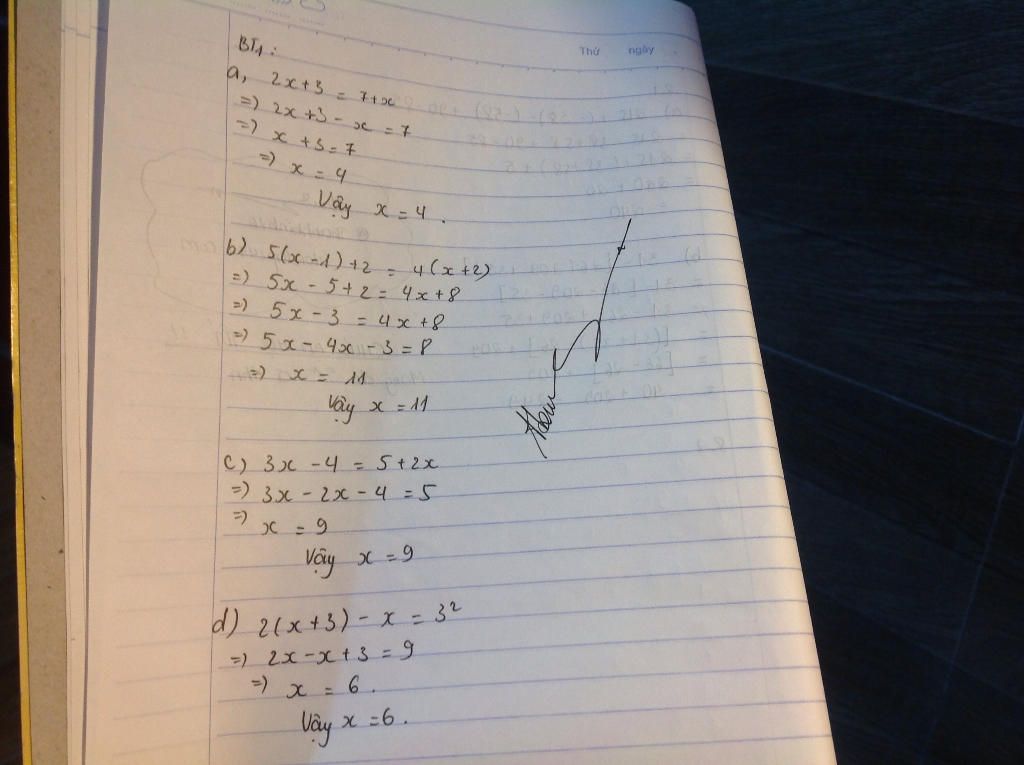 Thứ ngày
BT1:
a, 2x+3 = 7+x
=) 2x+3 - x = 7
=) x + 3 = 7
=) x = 4
Vậy x = 4.
b) 5(x-1)+2 = 4(x+2)
=) 5x - 5 + 2 = 4x+8
=) 5x - 3 = 4x+8
=) 5x - 4x - 3 = 8
=) x = 11
Vậy x = 11
c) 3x - 4 = 5 + 2x
=) 3x - 2x - 4 = 5
=) x = 9
Vậy x = 9
d) 2(x+3) - x = 3²
=) 2x - x + 3 = 9
=) x = 6.
Vậy x = 6.